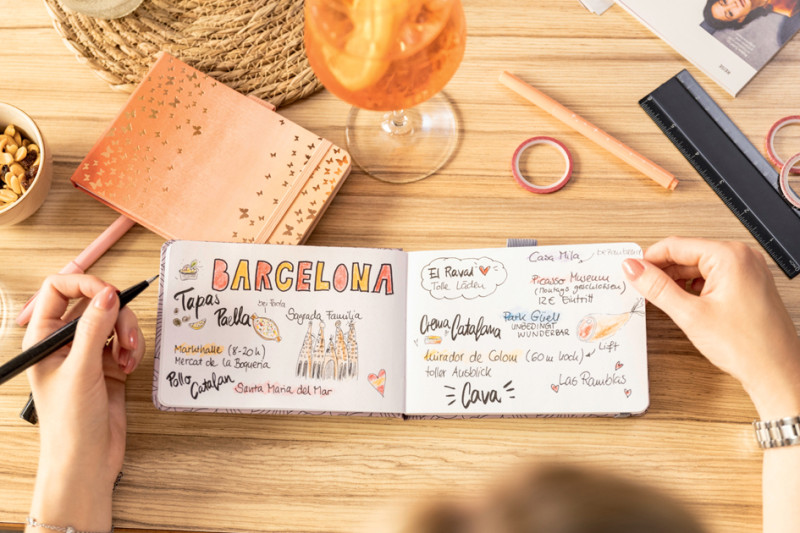 BARCELONA
Tapas
Paella
Sagrada Familia
Markthalle (8-20h)
Mercat de la Boqueria
Pollo
Catalan
Santa Maria del Mar
El Raval
Tolle Läden
Casa Mila
Picasso Museum
(Montags geschlossen)
12€ Eintritt
Crema Catalana
Park Güell
UNBEDINGT
WUNDERBAR
Mirador de Colom (60m hoch)
Lift
toller Ausblick
Cava
Las Ramblas